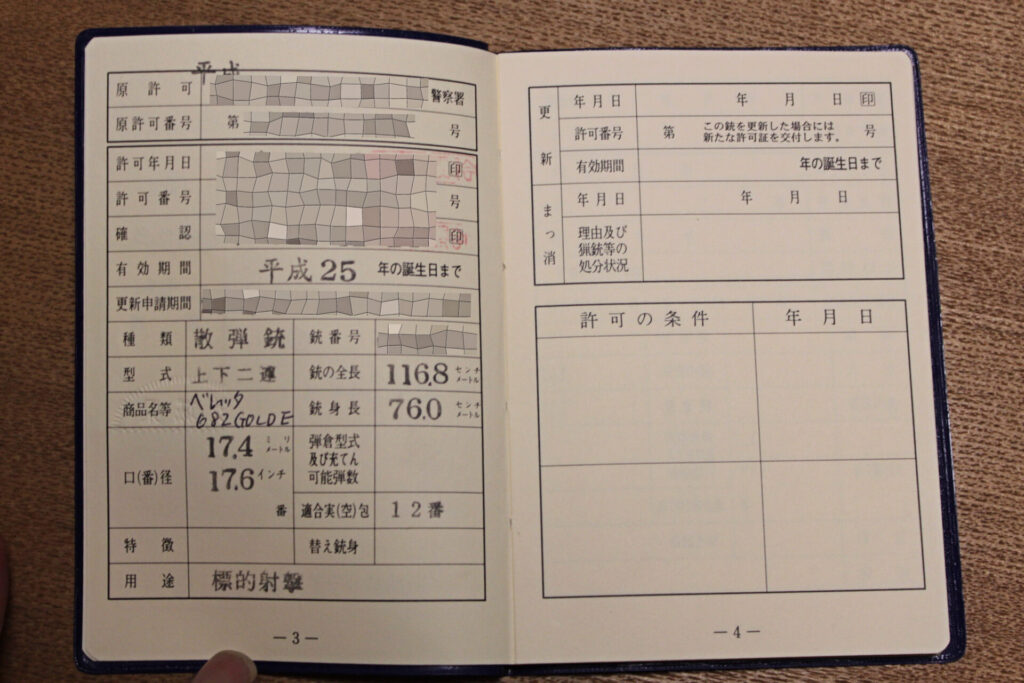 平成
原許可 警察署
原許可番号 第 号
許可年月日 印
許可番号 号
確認 印
有効期間 平成25 年の誕生日まで
更新申請期間
種類 散弾銃 銃番号
型式 上下二連 銃の全長 116.8 センチメートル
商品名等 ベレッタ 682GOLDE 銃身長 76.0 センチメートル
口(番)径 17.4 ミリメートル
17.6 インチ
番
弾倉型式
及び充てん
可能弾数
適合実(空)包 12番
特徴 替え銃身
用途 標的射撃
—3—
更新 年月日 年 月 日 印
許可番号 第 この銃を更新した場合には
新たな許可証を交付します。 号
有効期間 年の誕生日まで
まっ消 年月日 年 月 日
理由及び
猟銃等の
処分状況
許可の条件 年月日
—4—